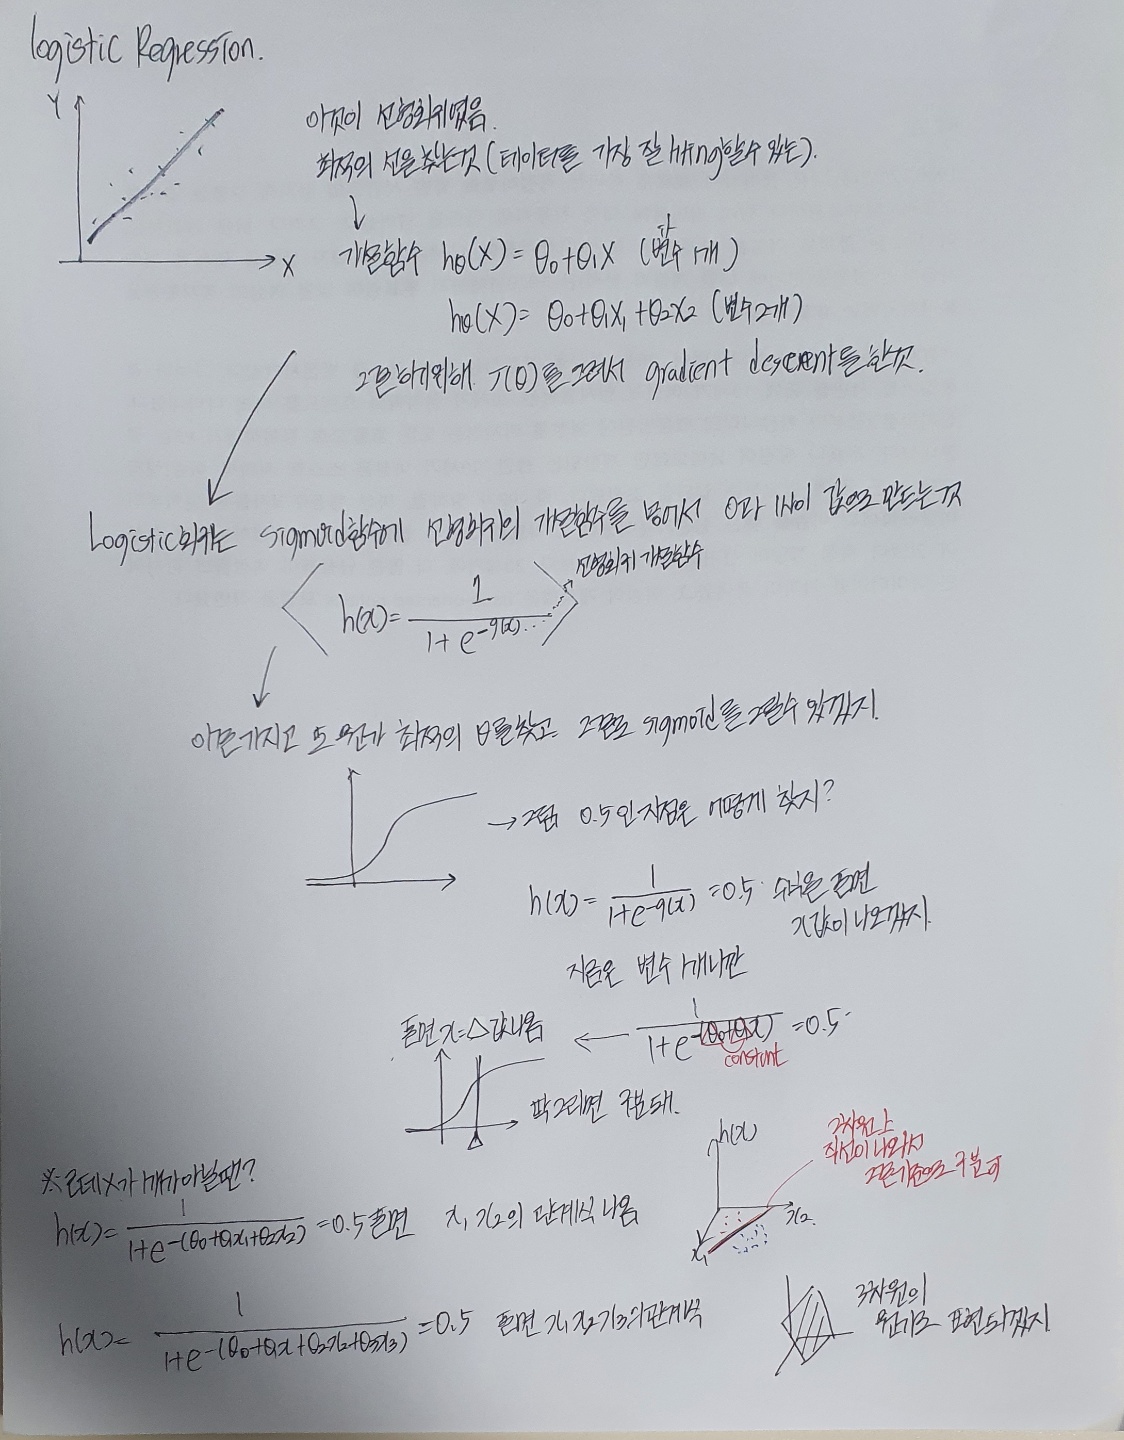 logistic Regression.
Y
이것이 선형회귀였음.
최적의 선을 찾는것 (데이터를 가장 잘 fitting할수 있는).
X
가설함수 hθ(X) = θ0+θ1X (변수 1개)
hθ(X) = θ0+θ1X1+θ2X2 (변수2개)
그걸 하기위해 J(θ)를 그려서 gradient descent를 한것.
Logistic회귀는 sigmoid함수에 선형회귀의 가설함수를 넣어서 0과 1사이 값으로 만드는것
선형회귀 가설함수
h(x) = 1 / 1+e^-g(x)
이걸가지고 또 뭔가 최적의 θ를 찾고 그걸로 sigmoid를 그릴수 있겠지.
→그럼 0.5인 지점은 어떻게 찾지?
h(x) = 1 / 1+e^-g(x) = 0.5 수식을 풀면
x값이 나오겠지.
지금은 변수 1개니깐
1 / 1+e^-(θ0+θ1x) = 0.5
constant
풀면 x=△ 값나옴
△
딱 그리면 구분돼.
※ 근데 x가 1개가 아닐땐?
h(x) = 1 / 1+e^-(θ0+θ1x1+θ2x2) = 0.5 풀면 x1 x2의 관계식 나옴
h(x)
x2
x1
2차원 상
직선이 나와서
그걸 기준으로 구분 可
h(x) = 1 / 1+e^-(θ0+θ1x+θ2x2+θ3x3) = 0.5 풀면 x1 x2 x3의 관계식
3차원의
표현되겠지